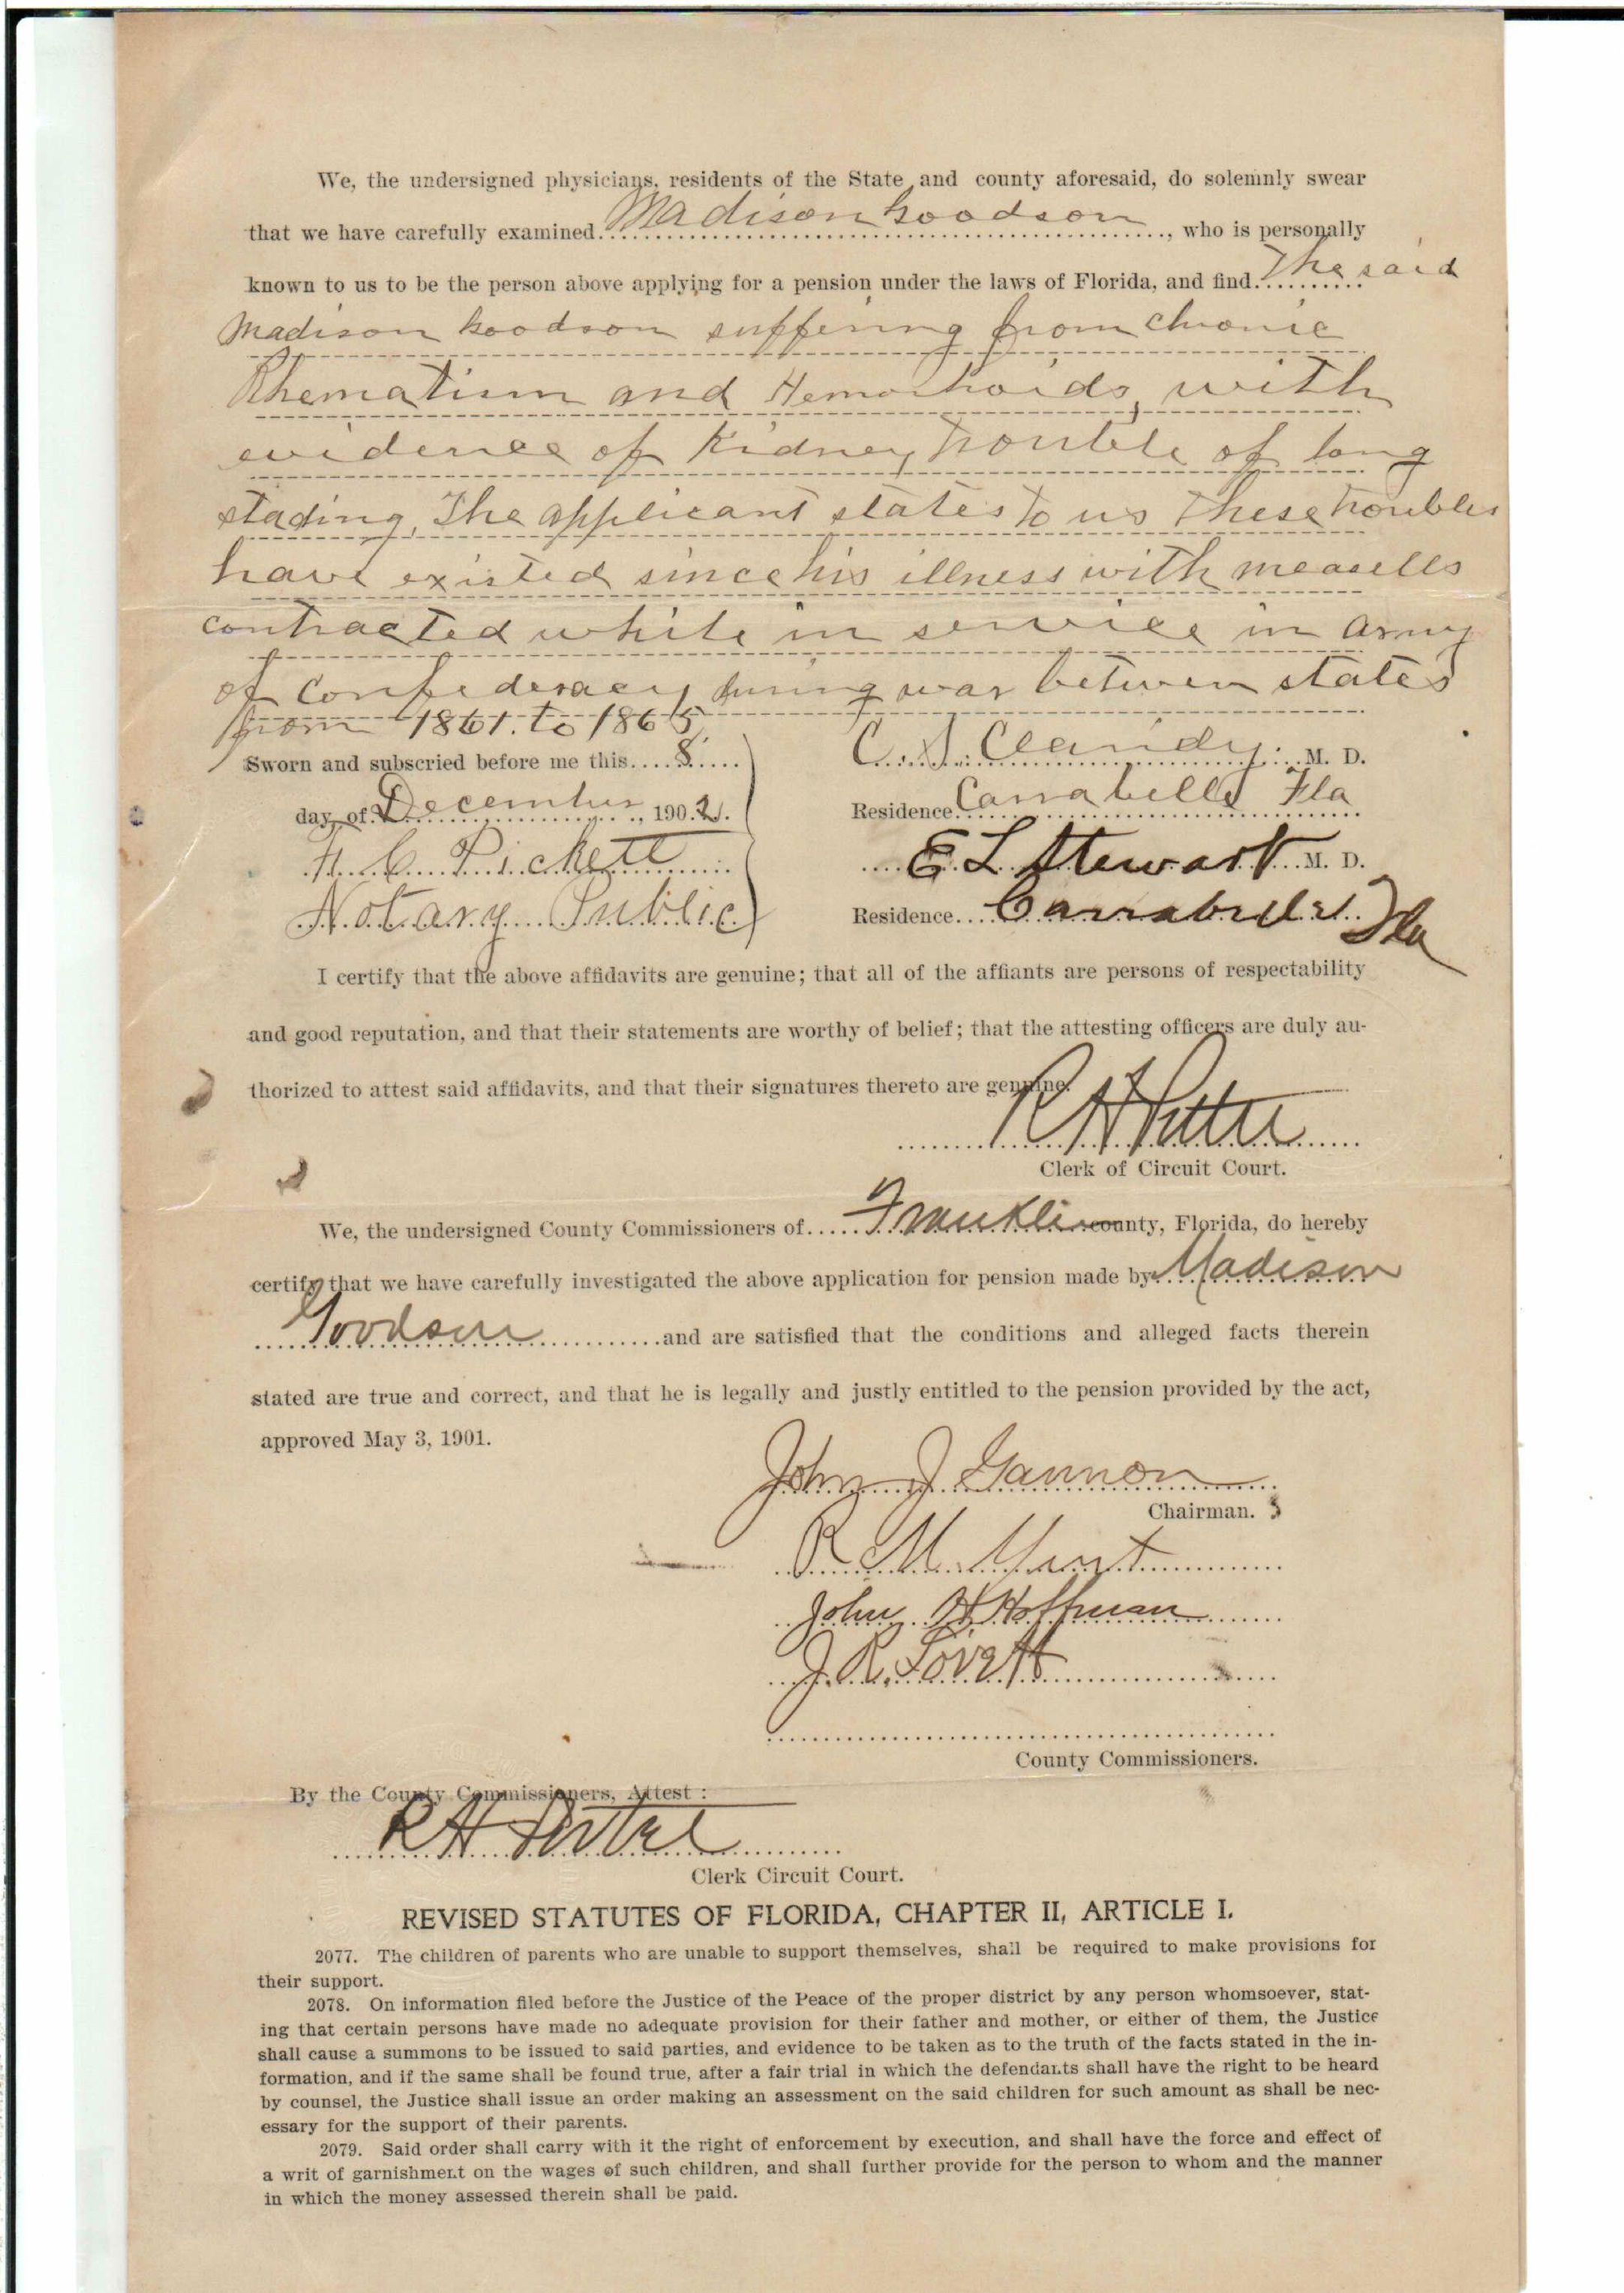 We, the undersigned physicians, residents of the State and county aforesaid, do solemnly swear
that we have carefully examined Madison Goodson, who is personally
known to us to be the person above applying for a pension under the laws of Florida, and find The said
Madison Goodson suffering from chronic
Rhematism and Hemorhoids, with
evidence of Kidney trouble of long
stading, The applicant states to us these troubles
have existed since his illness with measells
contracted while in service in army
of Confederacy during war between states
from 1861. to 1865
Sworn and subscried before me this 8 C. S. Clandy. M. D.
day of December, 1902. Residence Carrabelle Fla
H. C. Pickett E L Stewart M. D.
Notary Public Residence Carrabelle Fla
I certify that the above affidavits are genuine; that all of the affiants are persons of respectability
and good reputation, and that their statements are worthy of belief; that the attesting officers are duly au-
thorized to attest said affidavits, and that their signatures thereto are genuine.
R H
Clerk of Circuit Court.
We, the undersigned County Commissioners of Franklin county, Florida, do hereby
certify that we have carefully investigated the above application for pension made by Madison
Goodson and are satisfied that the conditions and alleged facts therein
stated are true and correct, and that he is legally and justly entitled to the pension provided by the act,
approved May 3, 1901.
John J Gannon
Chairman.
R M
John H Hoffman
J. R. Lovett
County Commissioners.
By the County Commissioners, Attest :
R H
Clerk Circuit Court.
REVISED STATUTES OF FLORIDA, CHAPTER II, ARTICLE I.
2077. The children of parents who are unable to support themselves, shall be required to make provisions for
their support.
2078. On information filed before the Justice of the Peace of the proper district by any person whomsoever, stat-
ing that certain persons have made no adequate provision for their father and mother, or either of them, the Justice
shall cause a summons to be issued to said parties, and evidence to be taken as to the truth of the facts stated in the in-
formation, and if the same shall be found true, after a fair trial in which the defendants shall have the right to be heard
by counsel, the Justice shall issue an order making an assessment on the said children for such amount as shall be nec-
essary for the support of their parents.
2079. Said order shall carry with it the right of enforcement by execution, and shall have the force and effect of
a writ of garnishment on the wages of such children, and shall further provide for the person to whom and the manner
in which the money assessed therein shall be paid.